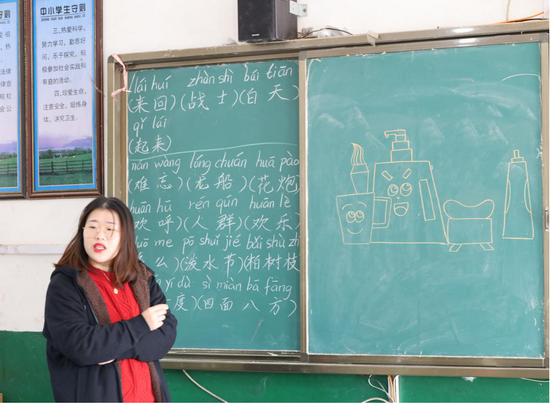 中小学生守则
三、热爱科学,
努力学习,勤思好
问,乐于探究,积
极参加社会实践和
有益的活动。
四、珍爱生命,
注意安全,锻炼身
体,讲究卫生。
lái huí zhàn shì bái tiān
(来回)(战士)(白天)
qǐ lái
(起来)
nán wàng lóng chuán huā pào
(难忘)(龙船)(花炮)
huān hū rén qún huān lè
(欢呼)(人群)(欢乐)
me pō shuǐ jié bǎi shù zhī
么)(泼水节)(柏树枝
yí dù sì miàn bā fāng
度)(四面八方)